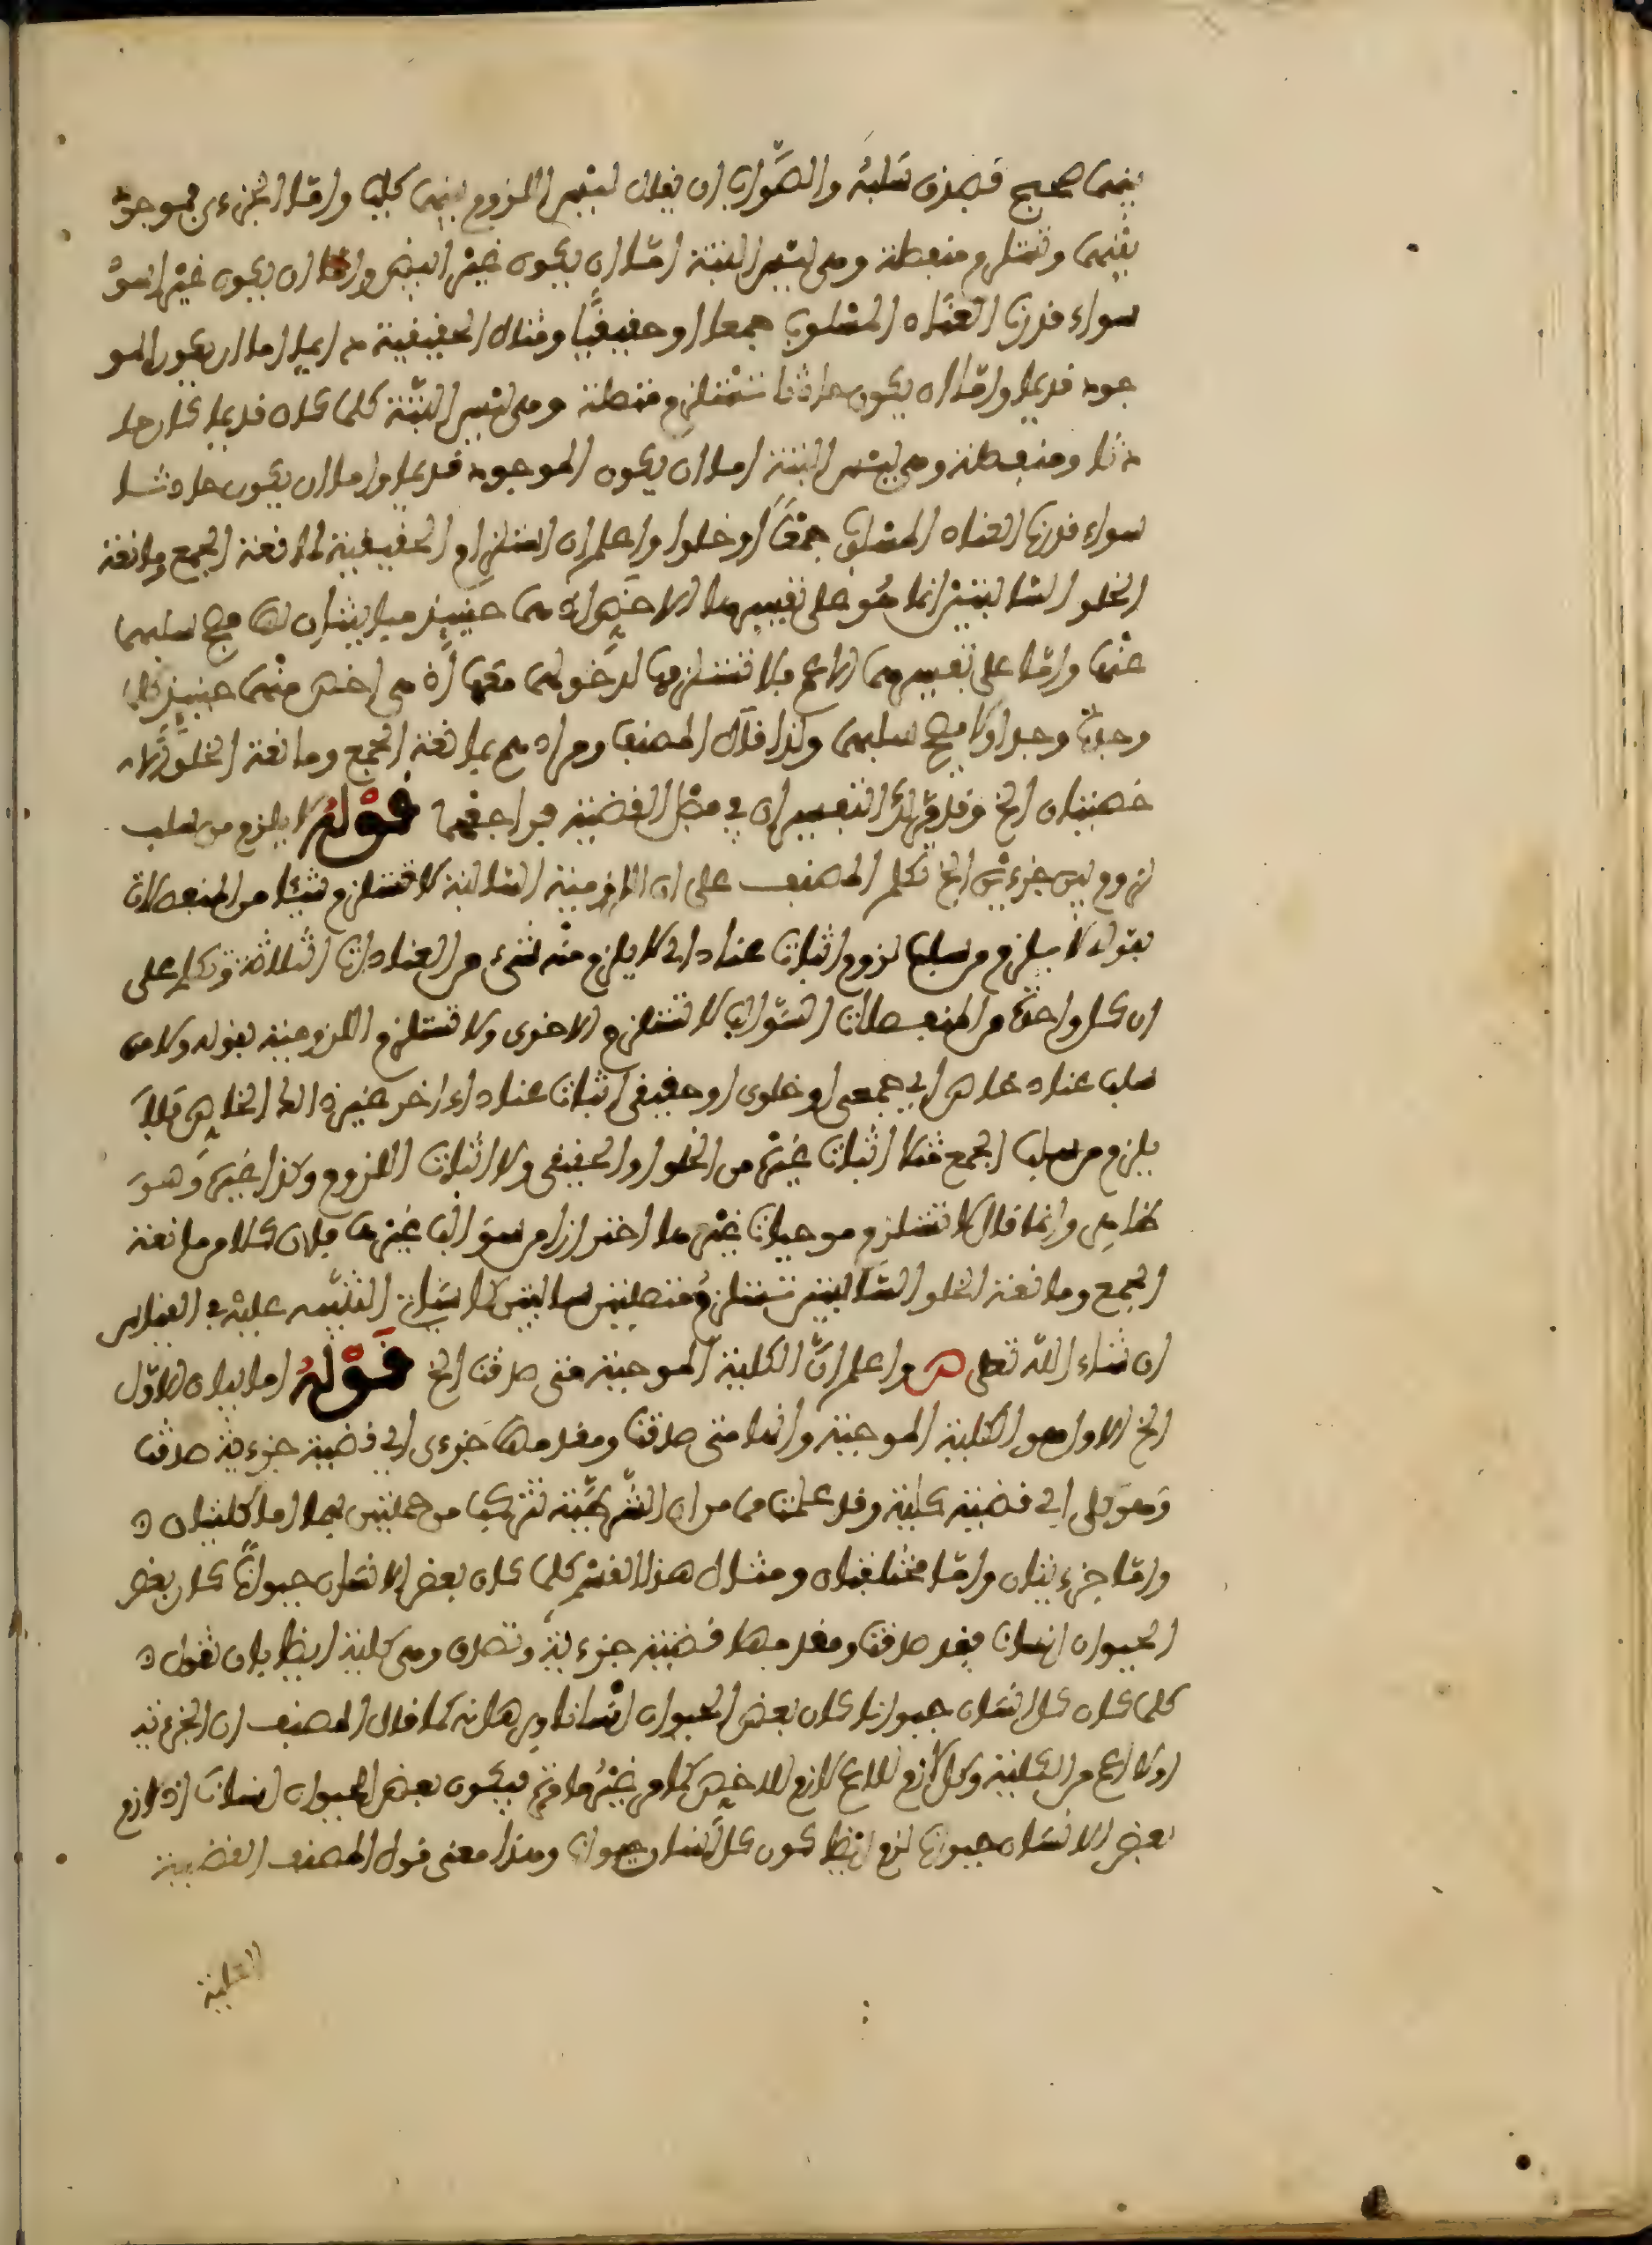 بينهما صحيح فيصدق سلبه والصواب ان يقال ليس اللزوم بينهما كليا واما الجزءي فموجود
بينهما وتستلزم منفصلة وهي ليس البتة اما ان يكون غير ابيض واما ان يكون غير اسود
سواء قدرنا العناد المسلوب جمعا او حقيقيا ومثال الحقيقية دايما اما ان يكون المو
جود قديما واما ان يكون حادثا تستلزم متصلة وهي ليس البتة كلما كان قديما كان حا
دثا ومنفصلة وهي ليس البتة اما ان يكون الموجود قديما واما ان يكون حادثا
سواء قدرنا العناد المسلوب جمعا او خلوا واعلم ان استلزام الحقيقية لمانعة الجمع ومانعة
الخلو السالبتين انما هو على تفسيرهما الاخص اذ هما حينيذ مباينتان لها فصح سلبهما
عنها واما على تفسيرهما الاعم فلا تستلزمهما لدخولهما معها اذ هي اخص منهما حينيذ كلما
وجدت وجدا ولا يصح سلبهما ولذا قال المصنف ومرادهم بمانعة الجمع ومانعة الخلو الا
خصيتان الخ وقد مر لك التفسيران في فصل القضية فراجعهما قوله لا يلزم من سلب
لزوم بين جزءين الخ تكلم المصنف على ان اللزومية السالبة لا تستلزم شيئا من المنفصلات
بقوله لا يلزم من سلب لزوم اثبات عناد اي لا يلزم منه شيء من العنادات الثلاثة وتكلم على
ان كل واحدة من المنفصلات السوالب لا تستلزم الاخرى ولا تستلزم اللزومية بقوله ولا من
سلب عناد خاص اي جمعي او خلوي او حقيقي اثبات عناد اخر غير ذالك الخاص فلا
يلزم من سلب الجمع مثلا اثبات غيره من الخلو او الحقيقي ولا اثبات اللزوم وكذا غيره وهو
ظاهر وانما قال لا تستلزم موجبات غيرها احترازا من سوالب غيرها فان كلا من مانعة
الجمع ومانعة الخلو السالبتين تستلزم متصلتين سالبتين كما سيات التنبيه عليه في القياس
ان شاء الله تعلى ص واعلم ان الكلية الموجبة متى صدقت الخ قوله اما بيان الاول
الخ الاول هو الكلية الموجبة وانها متى صدقت ومقدمها جزءي اي قضية جزءية صدقت
وهو كلي اي قضية كلية وقد علمت مما مر ان الشرطية تتركب من حمليتين فهما اما كليتان
واما جزءيتان واما مختلفتان ومثال هذا القسم كلما كان بعض الانسان حيوانا كان بعض
الحيوان انسانا فقد صدقت ومقدمها قضية جزءية وتصدق وهي كلية ايضا بان تقول
كلما كان كل انسان حيوانا كان بعض الحيوان انسانا وبرهانه كما قال المصنف ان الجزءية
اولا اعم من الكلية وكل لازم للاعم لازم للاخص كما مر غير ما مرة فيكون بعض الحيوان انسانا اذ لازم
بعض الانسان حيوانا لزم ايضا كون كل انسان حيوانا وهذا معنى قول المصنف القضية
الكلية